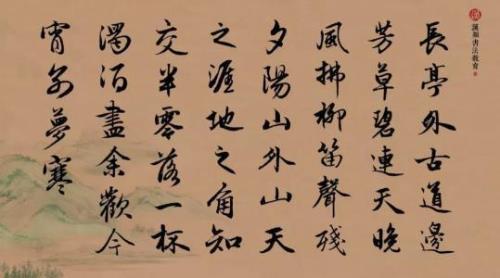 長亭外古道邊
芳草碧連天晚
風拂柳笛聲殘
夕陽山外山天
之涯地之角知
交半零落一杯
濁酒盡余歡今
宵别夢寒
書法教育